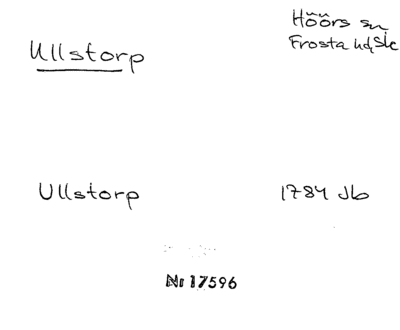 Ullstorp
Höörs sn
Frosta hd, Sk
Ullstorp
1784 Jb
Nr 17596